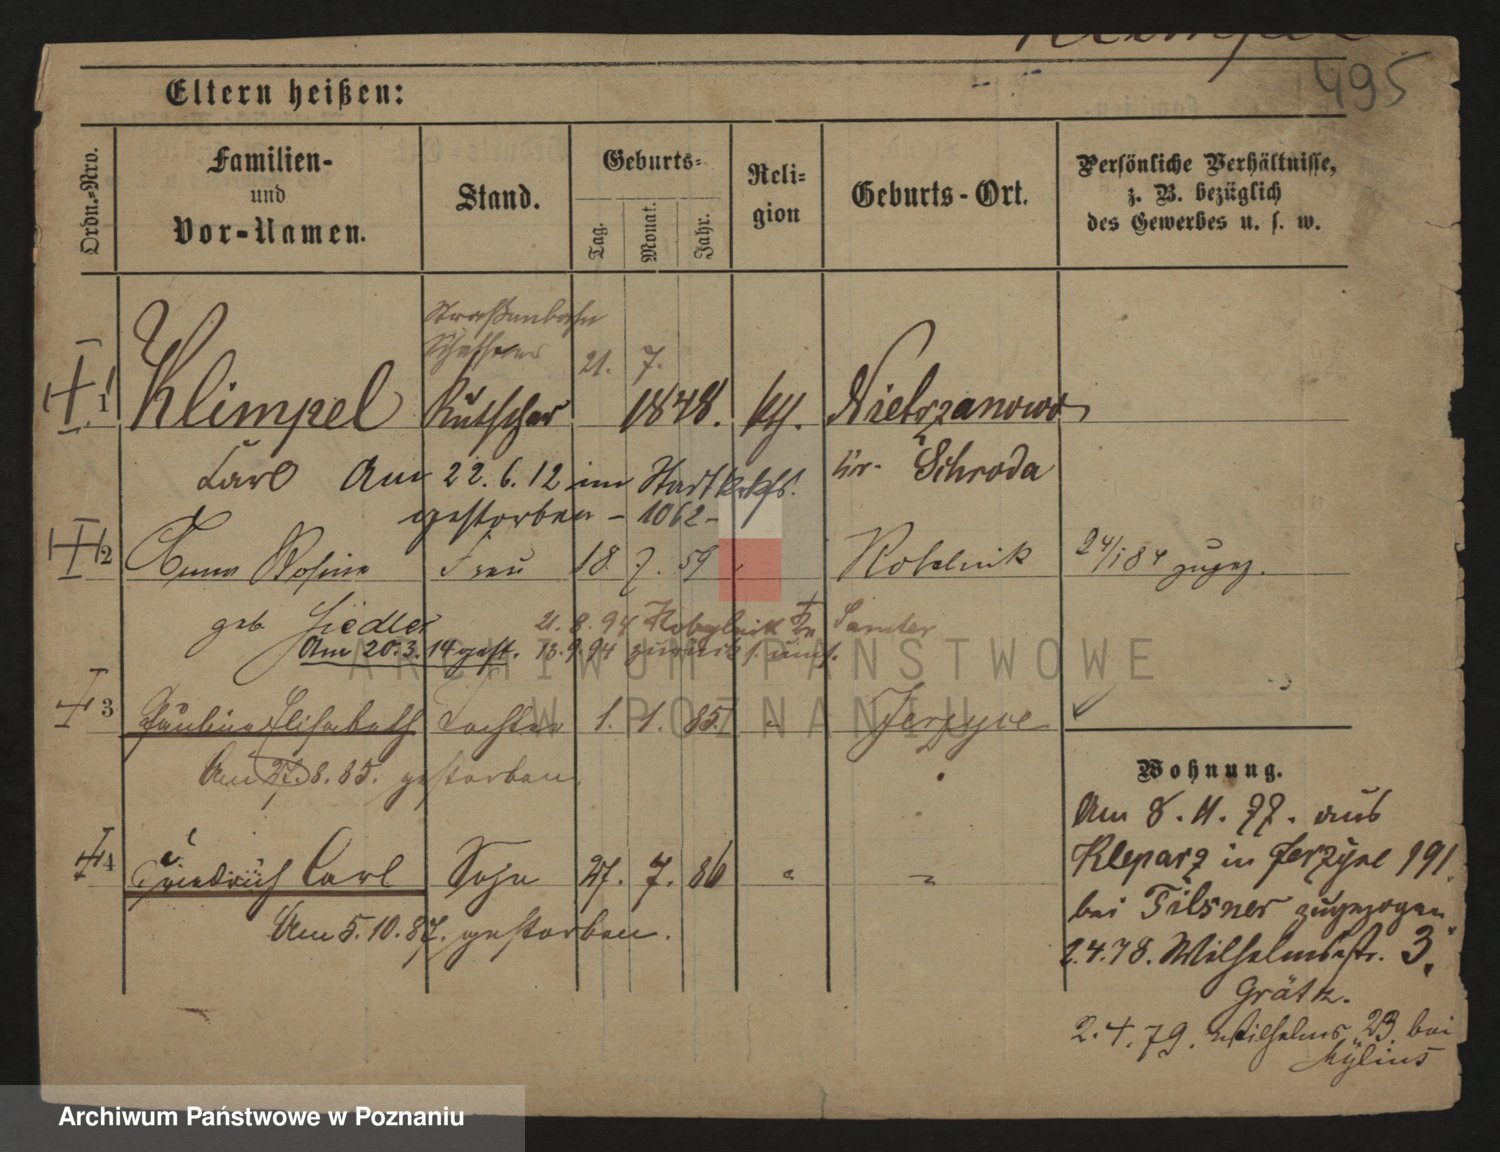 Klimpel
495
Eltern heißen:
Ordn.-Nro.
Familien-
und
Vor-Namen.
Stand.
Geburts-
Tag.
Monat.
Jahr.
Reli-
gion
Geburts-Ort.
Persönliche Verhältnisse,
z. B. bezüglich
des Gewerbes u. s. w.
Straßenbahn
Schaffner
21. 7.
1 Klimpel Kutscher 1848. kth. Nietrzanowo
Carl Am 22.6.12 im Stadtkrkhs. Kr. Schroda
gestorben - 1062 -
2 Anna Rosine Frau 18. 7. 59 " Kobelnik 24/1 84 zugez.
geb. Fiedler 21.8.94 Kobylnik Kr. Samter
Am 20.3.14 gest. 13.9.94 zurück
3 Pauline Elisabeth Tochter 1. 1. 85. " Jerzyce
Am 27.8.85. gestorben.
4 Friedrich Carl Sohn 27. 7. 86 " "
Am 5.10.87. gestorben.
Wohnung.
Am 8.11.77. aus
Kleparz in Jerzyce 191.
bei Tilsner zugezogen
2.4.78. Wilhelmstr. 3.
Grätz.
2.4.79. Wilhelms. 23 bei
Mylius
ARCHIWUM PAŃSTWOWE
W POZNANIU
Archiwum Państwowe w Poznaniu